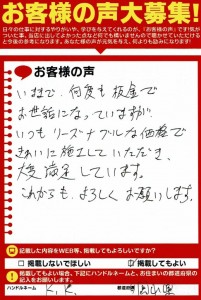 お客様の声大募集!
日々の仕事に対するやりがいや、学びを与えてくれるのが、「お客様の声」です!気が
ついた事、当店に出してよかった点など何でも構いませんので聞かせていただけると
今後の参考になります。あなた様の声が元気を与え、何よりも励みになります!
お客様の声
いままで、何度も板金で
お世話になっていますが
いつもリーズナブルな価格で
きれいに施工していただき、
大変満足しています。
これからも、よろしくお願いします。
記載した内容をWEB等、掲載してもよろしいですか?
掲載しないでほしい
掲載してもよい
掲載してもよい場合、下記にハンドルネームと、お住まいの都道府県の
記入をお願いします。
ハンドルネーム K.K. 都道府県 岡山県